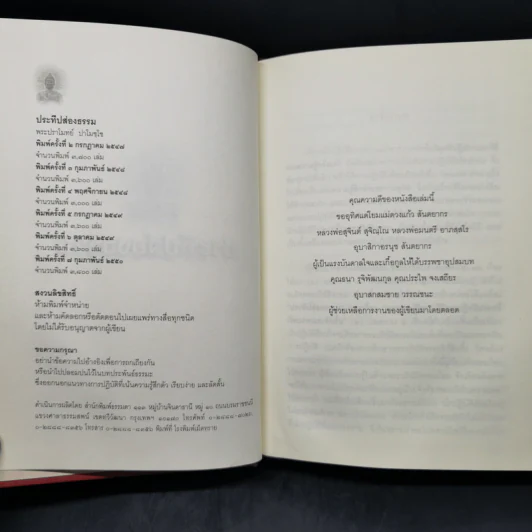 ประทีปส่องธรรม
พระปราโมทย์ ปาโมชฺโช
พิมพ์ครั้งที่ ๒ กรกฎาคม ๒๕๔๗
จำนวนพิมพ์ ๓,๘๐๐ เล่ม
พิมพ์ครั้งที่ ๓ กุมภาพันธ์ ๒๕๔๘
จำนวนพิมพ์ ๓,๖๐๐ เล่ม
พิมพ์ครั้งที่ ๔ พฤศจิกายน ๒๕๔๘
จำนวนพิมพ์ ๓,๐๐๐ เล่ม
พิมพ์ครั้งที่ ๕ กรกฎาคม ๒๕๔๙
จำนวนพิมพ์ ๓,๖๐๐ เล่ม
พิมพ์ครั้งที่ ๖ ตุลาคม ๒๕๔๙
จำนวนพิมพ์ ๓,๖๐๐ เล่ม
พิมพ์ครั้งที่ ๗ กุมภาพันธ์ ๒๕๕๐
จำนวนพิมพ์ ๓,๘๐๐ เล่ม
สงวนลิขสิทธิ์
ห้ามพิมพ์จำหน่าย
และห้ามคัดลอกหรือตัดตอนไปเผยแพร่ทางสื่อทุกชนิด
โดยไม่ได้รับอนุญาตจากผู้เขียน
ขอความกรุณา
อย่านำข้อความไปอ้างอิงเพื่อการถกเถียงกัน
หรือนำไปปลอมปนไว้ในบทประพันธ์ธรรมะ
ซึ่งออกนอกแนวทางการปฏิบัติที่เน้นความรู้สึกตัว เรียบง่าย และลัดสั้น
ดำเนินการผลิตโดย สำนักพิมพ์ธรรมดา ๑๑๑ หมู่บ้านจินดาธานี หมู่ ๑๐ ถนนบรมราชชนนี
แขวงศาลาธรรมสพน์ เขตทวีวัฒนา กรุงเทพฯ ๑๐๑๗๐ โทรศัพท์
โทรสาร ๐-๒๘๘๘-๘๒๕๖ พิมพ์ที่ โรงพิมพ์เม็ดทราย
คุณความดีของหนังสือเล่มนี้
ขออุทิศแด่โยมแม่ดวงแก้ว สันตยากร
หลวงพ่อสุจินต์ สุจิณฺโณ หลวงพ่อมนตรี อาภสฺสโร
อุบาสิกาอรนุช สันตยากร
ผู้เป็นแรงบันดาลใจและเกื้อกูลให้ได้บรรพชาอุปสมบท
คุณธนา รุจิพัฒนกุล คุณประไพ จงเสถียร
อุบาสกสมชาย วรรณชนะ
ผู้ช่วยเหลือการงานของผู้เขียนมาโดยตลอด